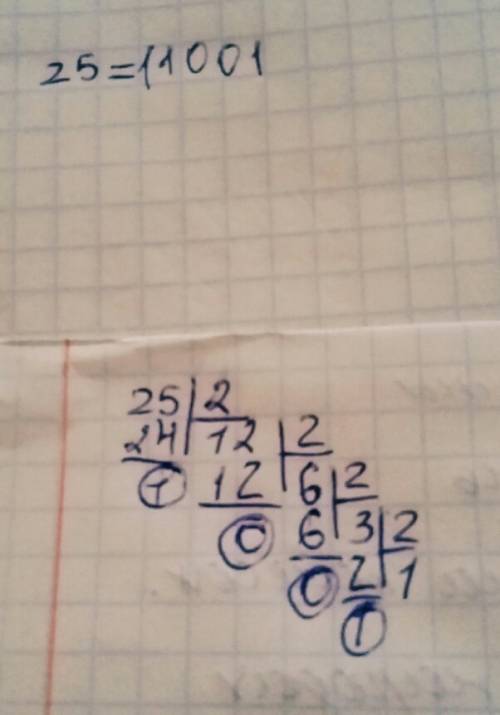 25=11001
25 2
24 12 2
1 12 6 2
0 6 3 2
0 2 1
1